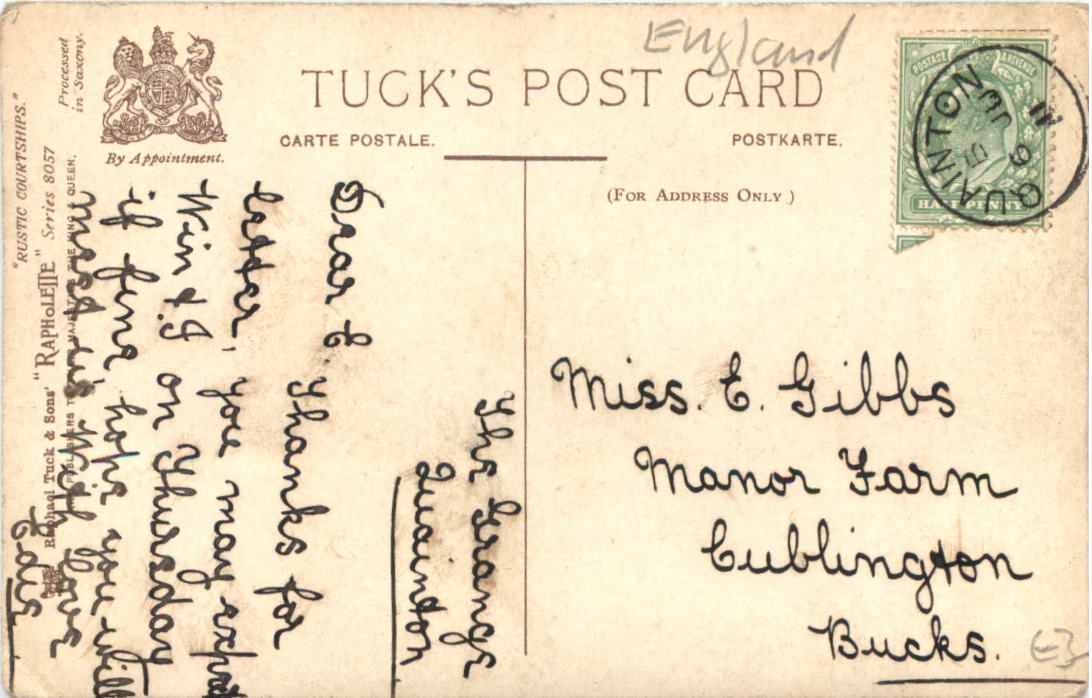 England
TUCK'S POST CARD
CARTE POSTALE.
POSTKARTE.
(FOR ADDRESS ONLY)
By Appointment.
Processed
in Saxony.
"RUSTIC COURTSHIPS."
Raphael Tuck & Sons' "RAPHOLETTE" Series 8057
POSTAGE & REVENUE
HALF PENNY
QUAINTON
JU 9
11
The Grange
Quainton
Dear E. Thanks for
letter, you may expect
Win & I on Thursday
if fine, hope you will
meet us. With love
Miss. E. Gibbs
Manor Farm
Cublington
Bucks.
£3